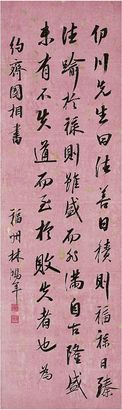 伊川先生曰德善日積則福祿日臻
德踰於祿則雖盛而非滿自古隆盛
未有不失道而至於敗失者也為
約齋相書
福州林鴻年